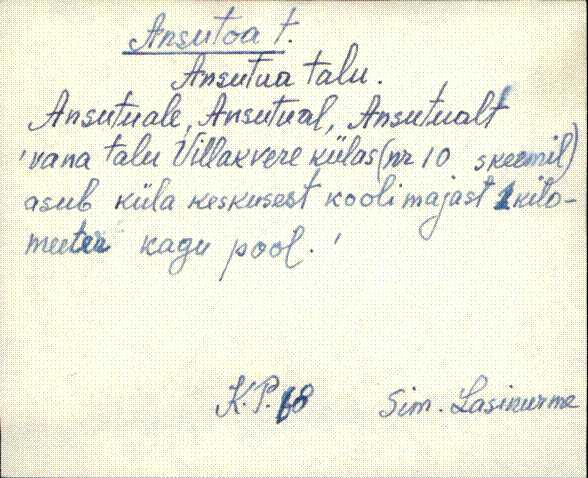 Ansutoa t.
Ansutua talu.
Ansutuale, Ansutual, Ansutualt
'vana talu Villakvere külas (nr 10 skeemil)
asub küla keskusest koolimajast 1 kilo-
meeter kagu pool.'
K.P. 68 Sim. Lasinurme